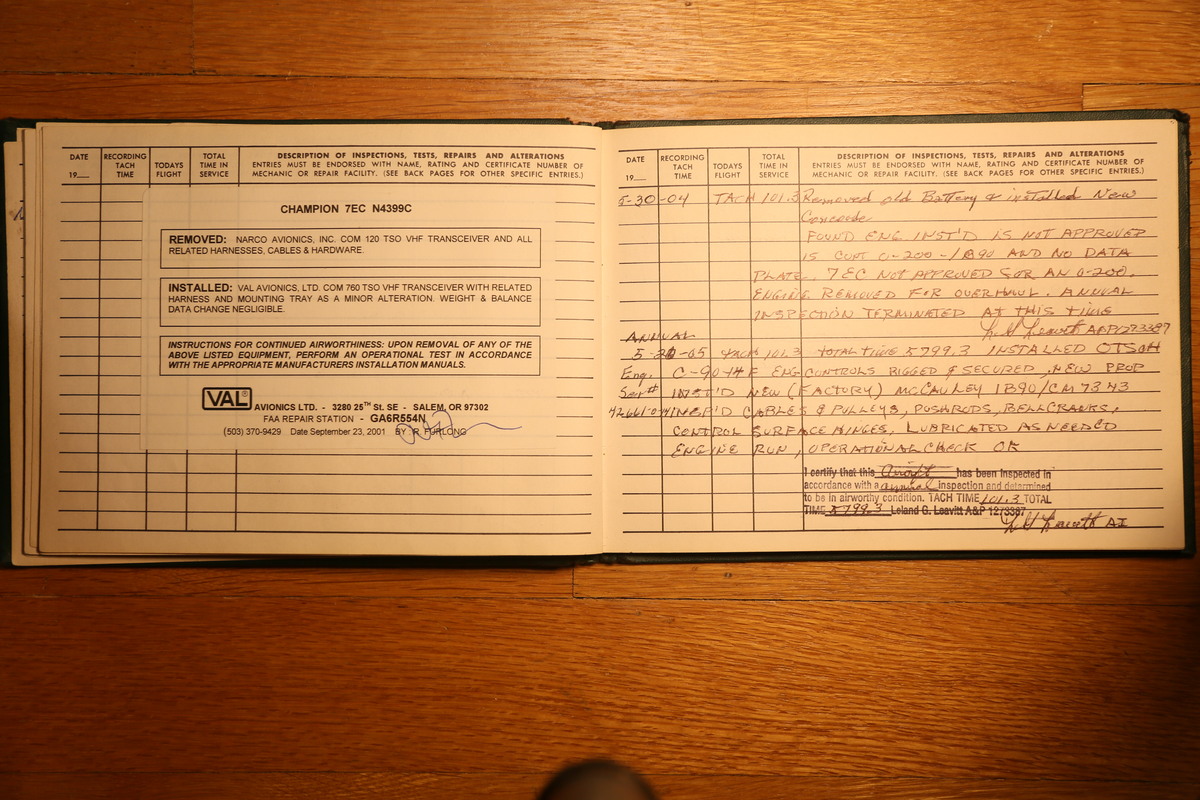 DATE
19
RECORDING TACH TIME
TODAYS FLIGHT
TOTAL TIME IN SERVICE
DESCRIPTION OF INSPECTIONS, TESTS, REPAIRS AND ALTERATIONS
ENTRIES MUST BE ENDORSED WITH NAME, RATING AND CERTIFICATE NUMBER OF
MECHANIC OR REPAIR FACILITY. (SEE BACK PAGES FOR OTHER SPECIFIC ENTRIES.)
CHAMPION 7EC N4399C
REMOVED: NARCO AVIONICS, INC. COM 120 TSO VHF TRANSCEIVER AND ALL
RELATED HARNESSES, CABLES & HARDWARE.
INSTALLED: VAL AVIONICS, LTD. COM 760 TSO VHF TRANSCEIVER WITH RELATED
HARNESS AND MOUNTING TRAY AS A MINOR ALTERATION. WEIGHT & BALANCE
DATA CHANGE NEGLIGIBLE.
INSTRUCTIONS FOR CONTINUED AIRWORTHINESS: UPON REMOVAL OF ANY OF THE
ABOVE LISTED EQUIPMENT, PERFORM AN OPERATIONAL TEST IN ACCORDANCE
WITH THE APPROPRIATE MANUFACTURERS INSTALLATION MANUALS.
VAL AVIONICS LTD. - 3280 25TH St. SE - SALEM, OR 97302
FAA REPAIR STATION - GA6R554N
(503) 370-9429 Date September 23, 2001 BY R. FURLONG
DATE
19
RECORDING TACH TIME
TODAYS FLIGHT
TOTAL TIME IN SERVICE
DESCRIPTION OF INSPECTIONS, TESTS, REPAIRS AND ALTERATIONS
ENTRIES MUST BE ENDORSED WITH NAME, RATING AND CERTIFICATE NUMBER OF
MECHANIC OR REPAIR FACILITY. (SEE BACK PAGES FOR OTHER SPECIFIC ENTRIES.)
5-30-04 TACH 101.3 Removed old Battery & installed New
Concorde
FOUND ENG INST'D IS NOT APPROVED
IS CONT O-200-/1B90 AND NO DATA
PLATE. 7EC NOT APPROVED FOR AN O-200.
ENGINE REMOVED FOR OVERHAUL. ANNUAL
INSPECTION TERMINATED AT THIS TIME
L G Leavitt A&P1273387
ANNUAL
5-20-05 TACH 101.3 TOTAL TIME 5799.3 INSTALLED OTSOH
Eng. C-90-14F ENG CONTROLS RIGGED & SECURED, NEW PROP
Ser# INST'D NEW (FACTORY) McCAULEY 1B90/CM 7343
INSP'D CABLES & PULLEYS, PUSHRODS, BELLCRANKS,
CONTROL SURFACE HINGES, LUBRICATED AS NEEDED
ENGINE RUN, OPERATIONAL CHECK OK
I certify that this Aircraft has been inspected in
accordance with a annual inspection and determined
to be in airworthy condition. TACH TIME 101.3 TOTAL
TIME 5799.3 Leland G. Leavitt A&P 1273387
L G Leavitt AI